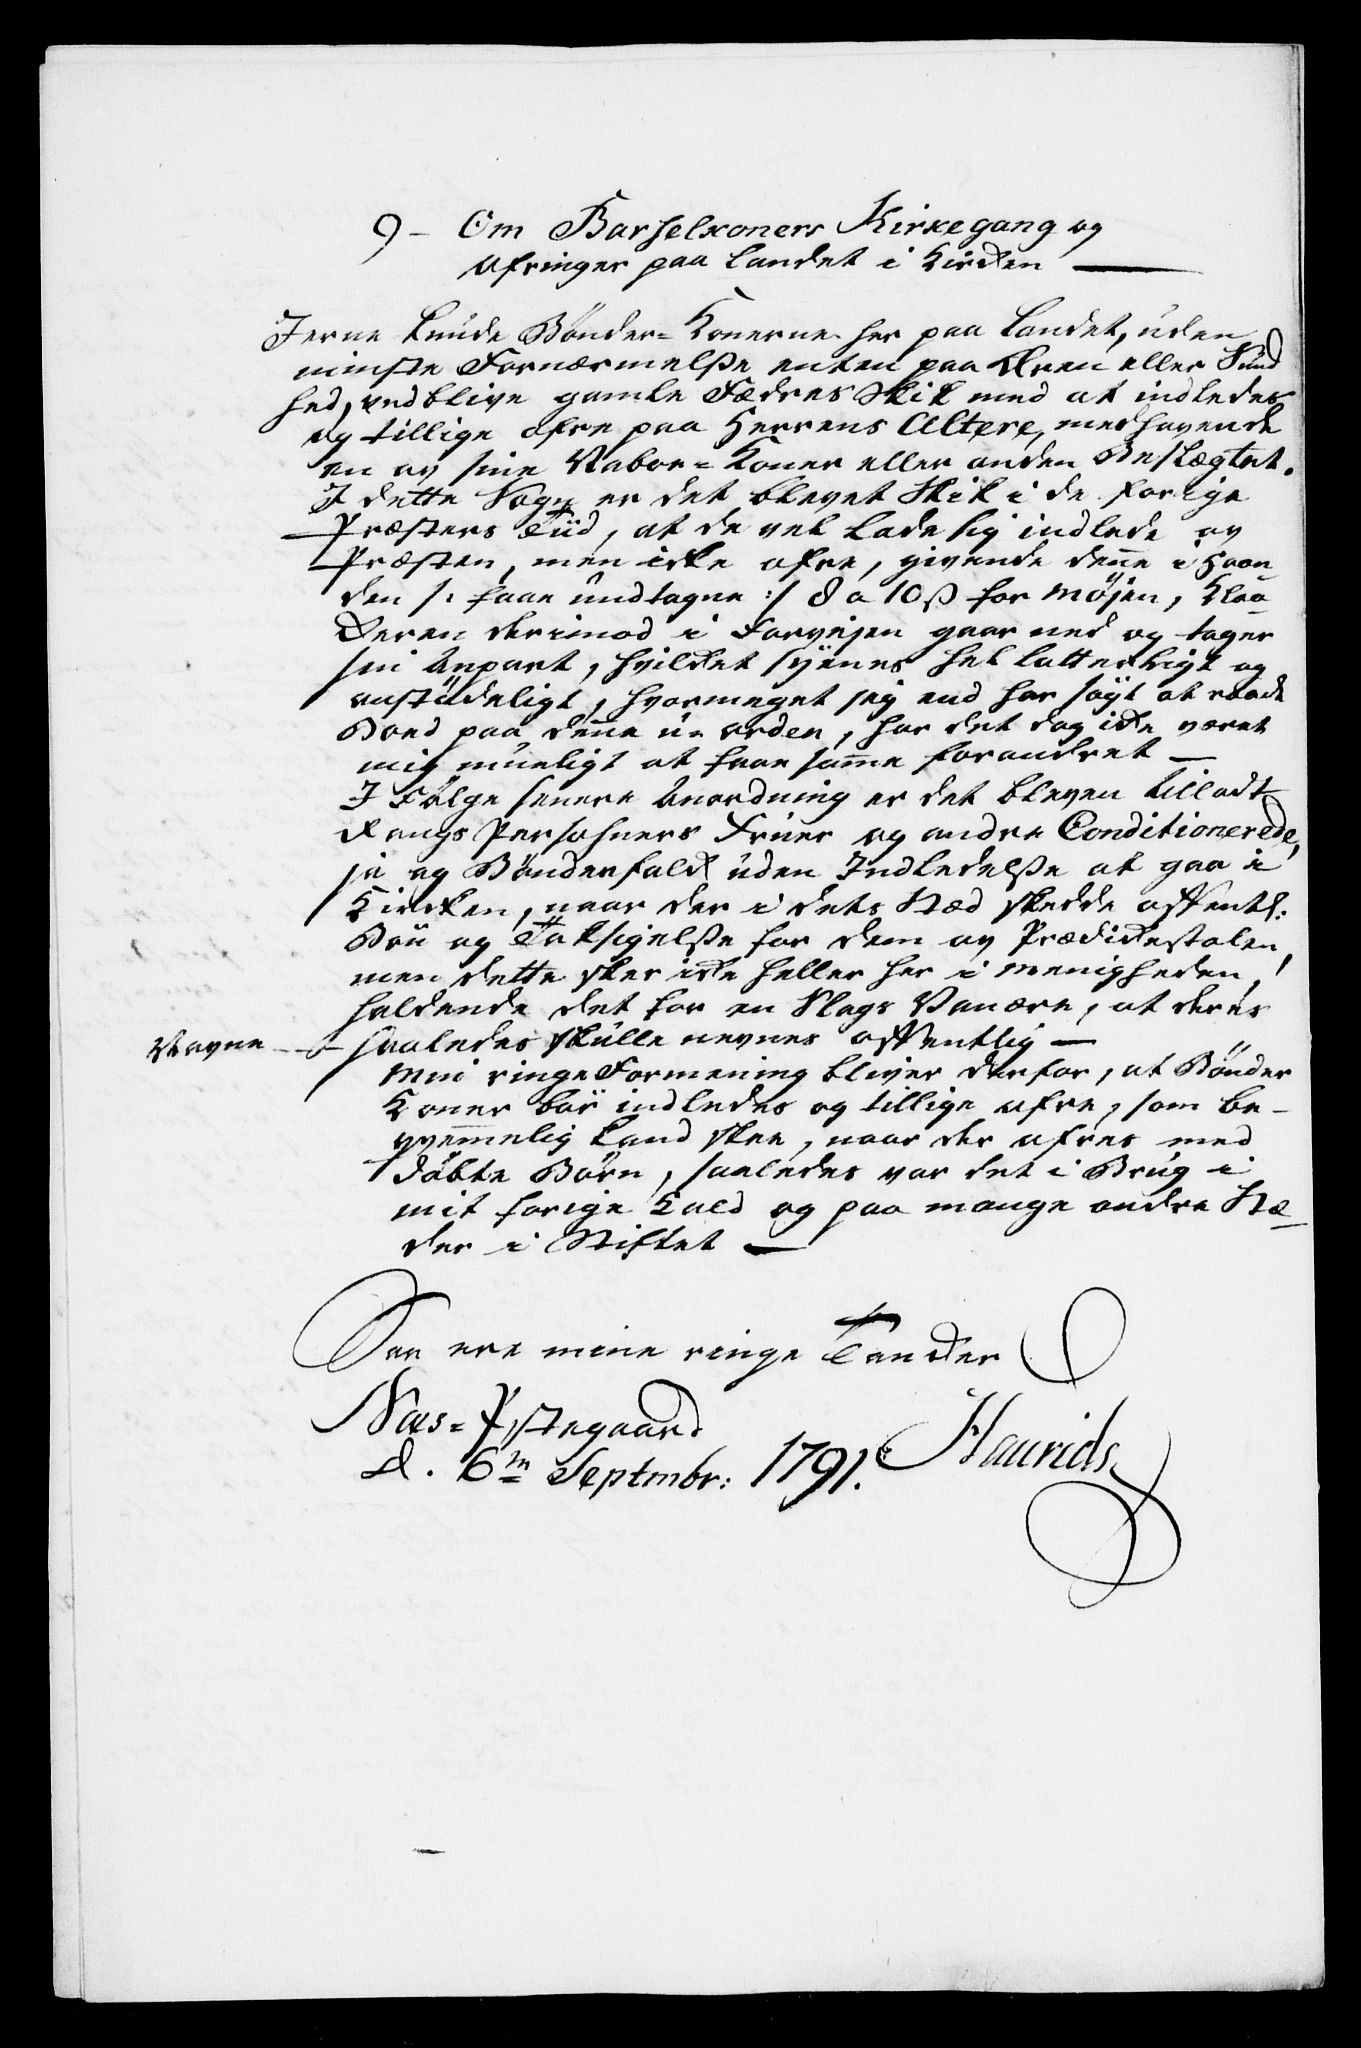 9 - Om Barselkoners Kirkegang og
Ofringer paa Landet i Kircken —
Jerne kunde Bönder-Konerne her paa Landet, uden
minste Fornærmelsse enten paa Æren eller Sund
hed, vedblive gamle Fædres Skik med at indledes
og tillige ofre paa Herrens Altere, medhavende
en av sine Nabor-Koner eller anden Beslægtet.
I dette Sogn er det blevet Skik i de forige
Præsters Tiid, at de vel lade sig indlede av
Præsten, men icke ofre, givende den̅e i Haan
den /: faae undtagne :/ 8 a 10 ß for Møjen, Klo
ckeren derimod i Forvejen gaar ned og tager
sin Anpart, hvilcket synes hel latterligt og
anstödeligt, hvormeget jeg end har søgt at raade
Bod paa den̅e u-orden, har det dog icke været
mig mueligt at faae sam̅e forandret —
I Følge senere Anordning er det bleven tilladt
Rangs Persohners Fruer og andre Conditionerede,
ja og Bönderfolck uden Indledelsse at gaa i
Kircken, naar der i dets Stæd skedde offentl:
Bön og Taksigelsse for dem av Prædickestolen,
men dette sker icke heller her i Menigheden,
holdende det for en Slags Vanære, at deres
Navne — saaledes skulle nevnes offentlig —
Min ringe Formening bliver derfor, at Bönder
Koner bör indledes og tillige ofre, som be-
qvem̅elig kand skee, naar der ofres med
döbte Börn, saaledes var det i Brug i
mit forige Kald og paa mange andre Stæ-
der i Stiftet —
Saa ere mine ringe Tancker
Næs-Pstegaard
d. 6te Septmbr: 1791. Haurids